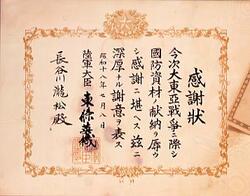 感謝狀
今次大東亞戰爭ニ際シ
國防資材ノ獻納ヲ辱ウ
シ感謝ニ堪ヘス茲ニ
深厚ナル謝意ヲ表ス
昭和十八年七月八日
陸軍大臣 東條英機
長谷川瀧松殿